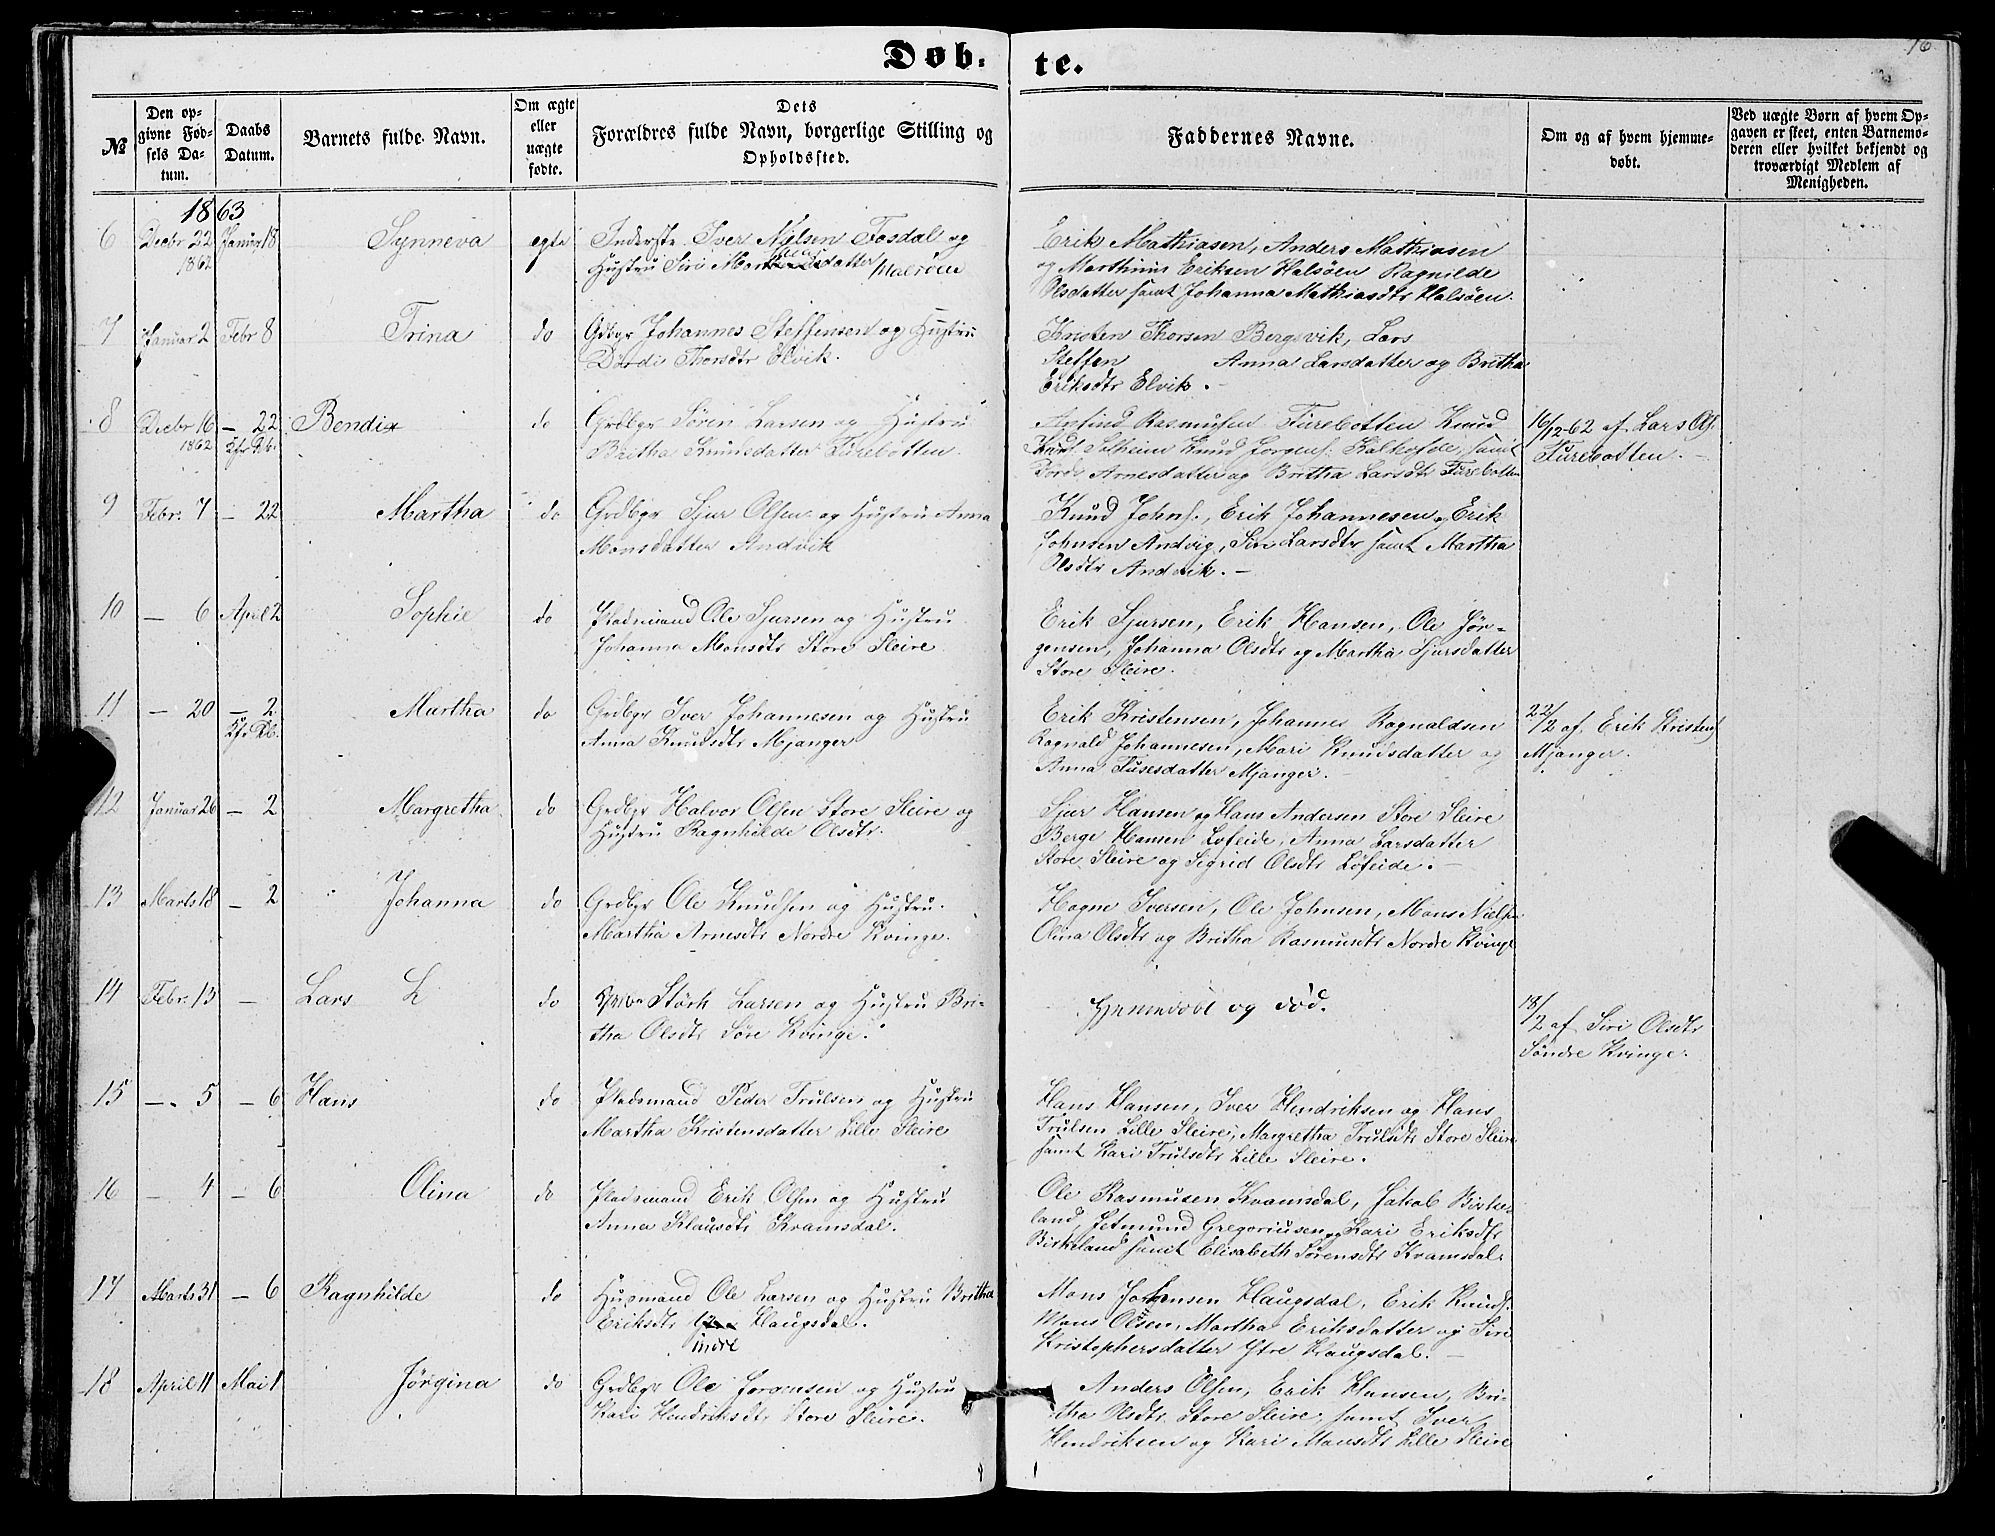 Døb-
te.
16
No
Den op-
givne Fød-
sels Da-
tum.
Daabs
Datum.
Barnets fulde Navn.
Om ægte
eller
uægte
fødte.
Dets
Forældres fulde Navn, borgerlige Stilling og
Opholdssted.
Faddernes Navne.
Om og af hvem hjemme-
døbt.
Ved uægte Børn af hvem Op-
gaven er skeet, enten Barnemo-
deren eller hvilket bekjendt og
troværdigt Medlem af
Menigheden.
1863
6 Decbr 22 Januar 18 Synneva egte Inderste Iver Nielsen Fosdal og
1862 Hustru Siri datter Halsöen
Erik Mathiasen, Anders Mathiasen
og Marthinus Eriksen Halsöen Ragnilde
Olsdatter samt Johanna Mathiasdtr Halsöen.
7 Januar 2 Febr 8 Trina do Gdbgr Johannes Steffensen og Hustru
Dordi Thorsdtr Elvik.
Kristen Thorsen Bergsvik, Lars
Steffen Anna Larsdatter og Britha
Eriksdtr Elvik.
8 Decbr 16 – 22 Bendix do Grdbgr Sören Larsen og Hustru
1862 Kfr Db. Britha Knudsdatter Furebotten.
Anfind Rasmusen Furebotten Knud
Solheim Knud Jorgens. Kalhofde, samt
Dordi Arnesdatter og Britha Larsdtr Furebotten
16/12-62 af Lars Ols.
Furebotten. –
9 Febr. 7 – 22 Martha do Grdbgr Sjur Olsen og Hustru Anna
Monsdatter Andvik
Knud Johns., Erik Johannesen og Erik
Johnsen Andvig, Siri Larsdtr samt Martha
Olsdtr Andvik. –
10 – 6 April 2 Sophie do Pladsmand Ole Sjursen og Hustru
Johanna Monsdtr Store Sleire
Erik Sjursen, Erik Hansen, Ole Jör-
gensen, Johanna Olsdtr og Martha Sjursdatter
Store Sleire.
11 – 20 – 2 Martha do Grdbgr Iver Johannesen og Hustru
Kfr Db. Anna Knudsdtr Mjanger
Erik Kristensen, Johannes Ragnaldsen
Ragnald Johannesen, Mari Knudsdatter og
Anna Fusesdatter Mjanger.
22/2 af Erik Kristens
Mjanger.
12 Januar 26 – 2 Margretha do Grdbgr Halvor Olsen Store Sleire og
Hustru Ragnhilde Olsdtr.
Sjur Hansen og Hans Andersen Store Sleire
Berge Hansen Lofeide, Anna Larsdatter
Store Sleire og Sigrid Olsdtr Lofeide. –
13 Marts 18 – 2 Johanna do Grdbgr Ole Knudsen og Hustru
Martha Arnesdtr Nordre Kvinge.
Hagne Iversen, Ole Johnsen, Mons Nielsen
Olina Olsdtr og Britha Rasmusdtr Nordre Kvinge
14 Febr. 13 – Lars L do Störk Larsen og Hustru Bri-
tha Olsdtr Söre Kvinge.
Hjemmedöbt og död.
13/2 af Siri Olsdtr
Söndre Kvinge.
15 – 5 – 6 Hans do Pladsmand Peder Trulsen og Hustru
Martha Kristensdatter Lille Sleire
Hans Hansen, Iver Hendriksen og Hans
Trulsen Lille Sleire, Margretha Trulsdtr Store Sleire
samt Kari Trulsdtr Lille Sleire.
16 – 4 – 6 Olina do Pladsmand Erik Olsen og Hustru
Anna Klausdtr Kvamsdal.
Ole Rasmusen Kvamsdal, Jakob Birke-
land, Jetmund Gregoriusen og Kari Eriksdtr
Birkeland samt Elisabeth Sörensdtr Kvamsdal.
17 Marts 31 – 6 Ragnhilde do Husmand Ole Larsen og Hustru Britha
Eriksdtr Haugsdal.
indre
Mons Johnsen Haugsdal, Erik Knuds.
Mons Olsen, Martha Eriksdatter og Siri
Kristophersdatter Ytre Haugsdal. –
18 April 11 Mai 1 Jörgina do Grdbgr Ole Jorgensen og Hustru
Kari Hendriksdtr Store Sleire.
Anders Olsen, Erik Hansen, Bri-
tha Olsdtr Store Sleire, samt Iver
Hendriksen og Kari Monsdtr Lille Sleire